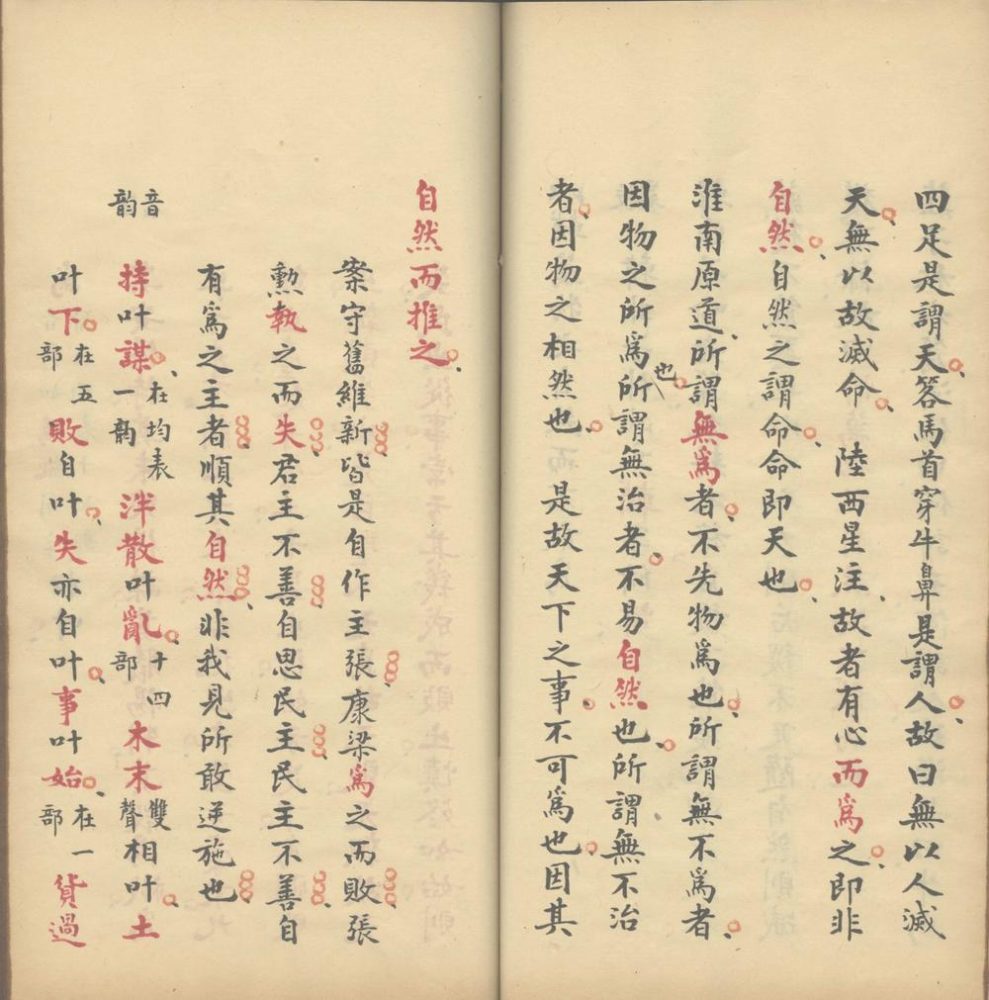 四足是謂天答馬首穿牛鼻是謂人故曰無以人滅
天無以故滅命 陸西星注故者有心而爲之即非
自然自然之謂命命即天也
淮南原道所謂無爲者不先物爲也所謂無不爲者
因物之所爲也所謂無治者不易自然也所謂無不治
者因物之相然也是故天下之事不可爲也因其
自然而推之
案守舊維新皆是自作主張康梁爲之而敗張
勲執之而失君主不善自思民主民主不善自
有爲之主者順其自然非我見所敢逆施也
音韵 持叶謀在均表一韵 泮散叶亂十四部 木末雙聲相叶土
叶下在五部 敗自叶失亦自叶事叶始在一部 貨過